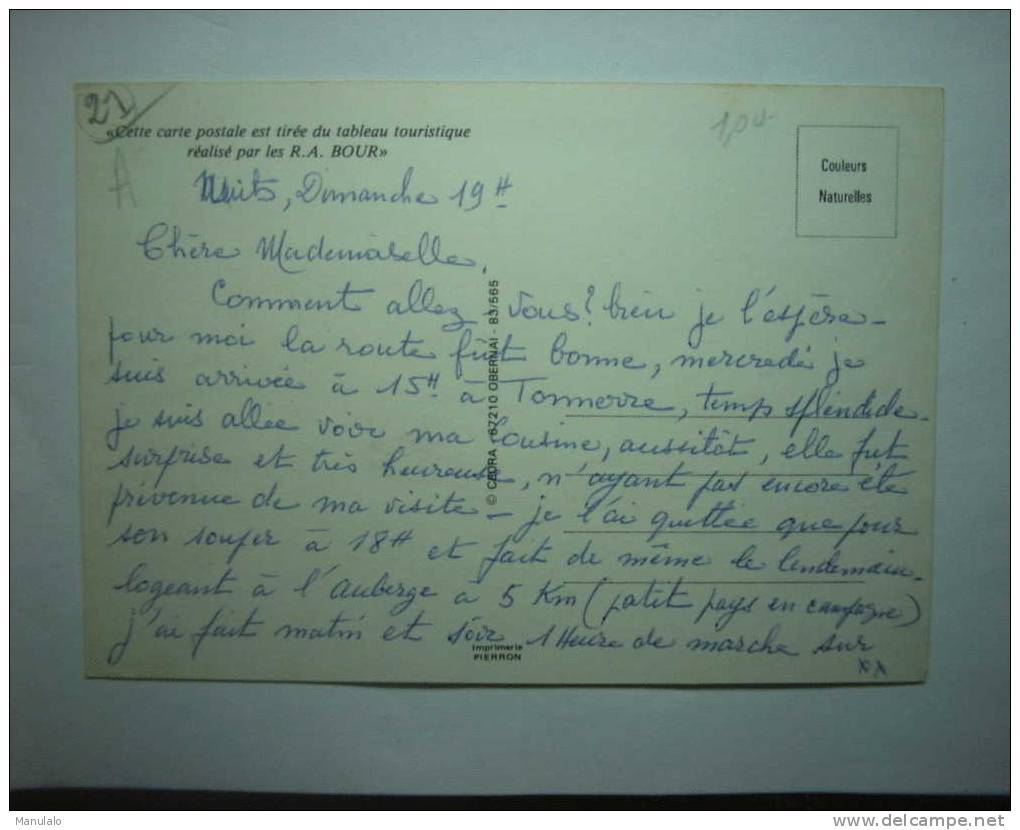 21
«Cette carte postale est tirée du tableau touristique
réalisé par les R.A. BOUR»
A
1,00
Couleurs
Naturelles
Nuits, Dimanche 19H
Chère Mademoiselle,
Comment allez vous? bien je l'espère -
pour moi la route fût bonne, mercredi je
suis arrivée à 15H à Tonnerre, temps splendide.
je suis allée voir ma Cousine, aussitôt, elle fut
surprise et très heureuse, n'ayant pas encore été
prévenue de ma visite - je l'ai quittée que pour
son souper à 18H et fait de même le lendemain.
logeant à l'Auberge à 5 Km (petit pays en campagne)
j'ai fait matin et soir 1 Heure de marche sur
xx
© CEDRA - 67210 OBERNAI - 83/565
Imprimerie
PIERRON
Manulalo
delcampe.net